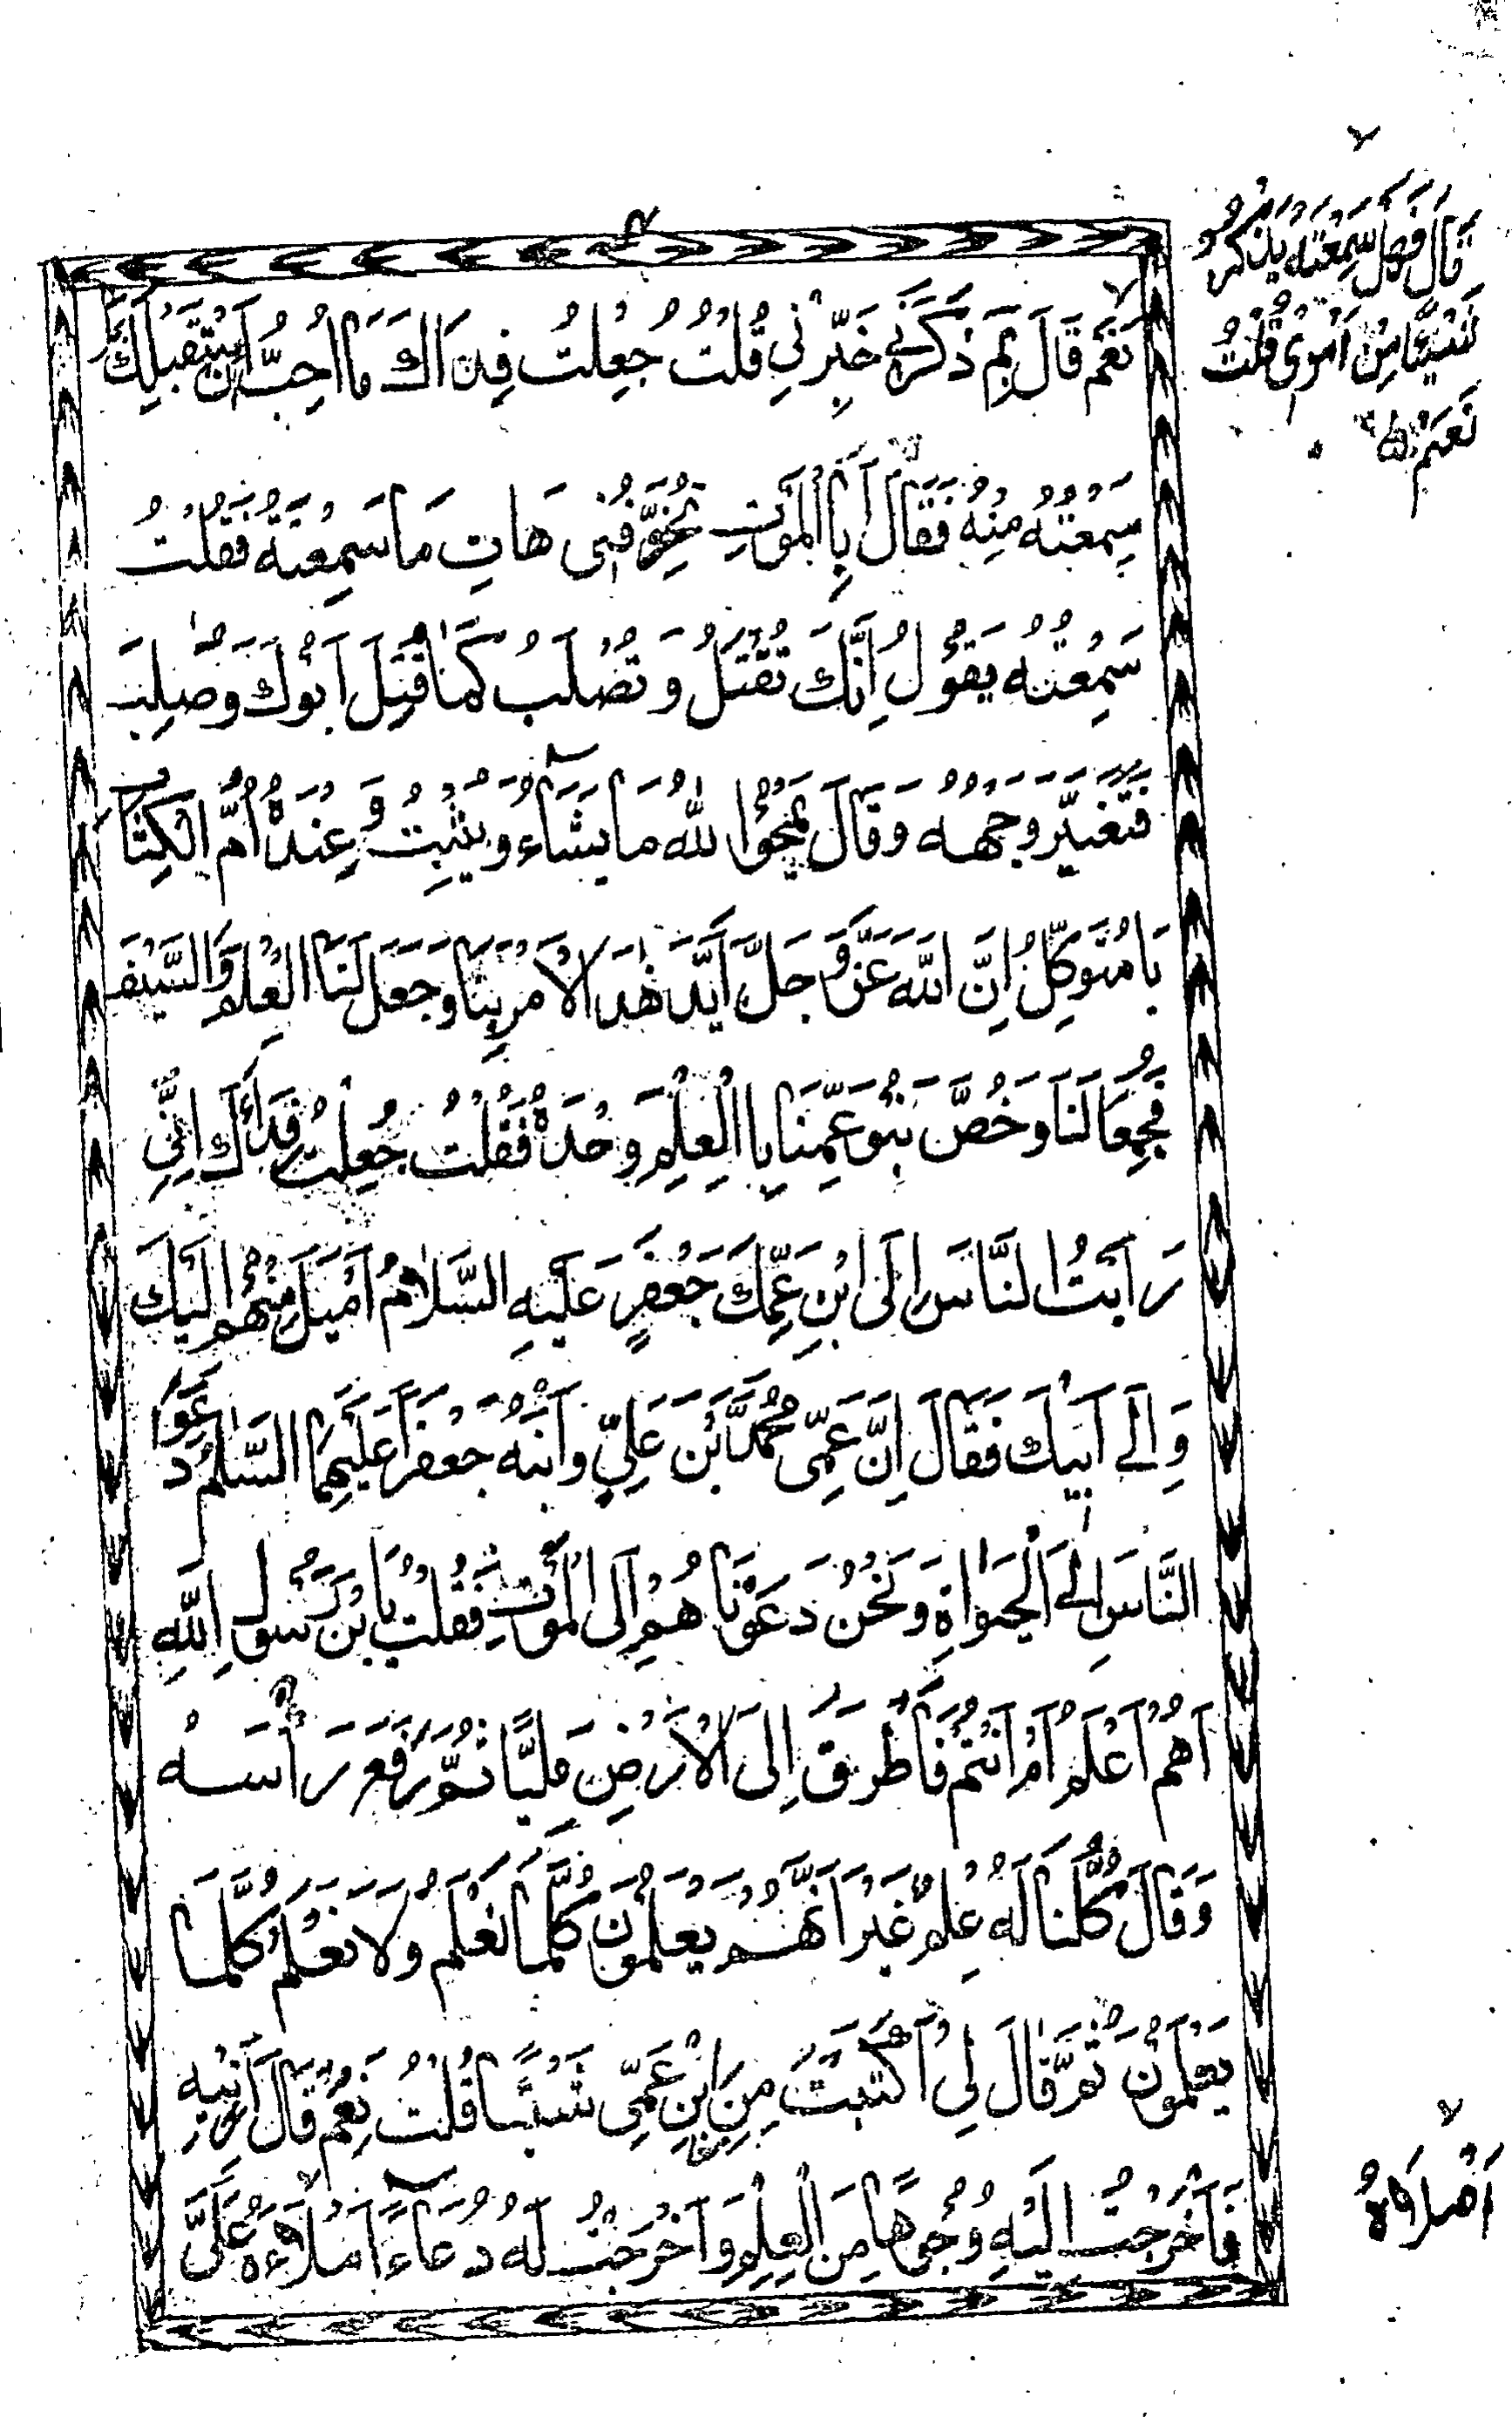 نَعَمْ قَالَ بِمَ ذَكَرَنِي خَبِّرْنِي قُلْتُ جُعِلْتُ فِدَاكَ مَا اُحِبُّ اَنْ اَسْتَقْبِلَكَ بِمَا
سَمِعْتُهُ مِنْهُ فَقَالَ اَبِا الْمَوْتِ تُخَوِّفُنِى هَاتِ مَا سَمِعْتَهُ فَقُلْتُ
سَمِعْتُهُ يَقُولُ اِنَّكَ تُقْتَلُ وَتُصْلَبُ كَمَا قُتِلَ اَبُوكَ وَصُلِبَ
فَتَغَيَّرَ وَجْهُهُ وَقَالَ يَمْحُوا اللّٰهُ مَا يَشَآءُ وَيُثْبِتُ وَعِنْدَهُ اُمُّ الْكِتَابِ
يَا مُتَوَكِّلُ اِنَّ اللّٰهَ عَزَّ وَجَلَّ اَيَّدَ هٰذَا الْاَمْرَ بِنَا وَجَعَلَ لَنَا الْعِلْمَ وَالسَّيْفَ
فَجُمِعَا لَنَا وَخُصَّ بَنُو عَمِّنَا بِا الْعِلْمِ وَحْدَهُ فَقُلْتُ جُعِلْتُ فِدَاءَكَ اِنِّي
رَاَيْتُ النَّاسَ اِلَى ابْنِ عَمِّكَ جَعْفَرٍ عَلَيْهِ السَّلَامُ اَمْيَلَ مِنْهُمْ اِلَيْكَ
وَاِلٰى اَبِيكَ فَقَالَ اِنَّ عَمِّى مُحَمَّدَ بْنَ عَلِيٍّ وَابْنَهُ جَعْفَرًا عَلَيْهِمَا السَّلٰمُ دَعَوَا
النَّاسَ اِلَى الْحَيٰواةِ وَنَحْنُ دَعَوْنَاهُمْ اِلَى الْمَوْتِ فَقُلْتُ يَا بْنَ رَسُولِ اللّٰهِ
اَهُمْ اَعْلَمُ اَمْ اَنْتُمْ فَاَطْرَقَ اِلَى الْاَرْضِ مَلِيًّا ثُمَّ رَفَعَ رَأْسَهُ
وَقَالَ كُلُّنَا لَهُ عِلْمٌ غَيْرَ اَنَّهُمْ يَعْلَمُونَ كُلَّمَا نَعْلَمُ وَلَا نَعْلَمُ كُلَّمَا
يَعْلَمُونَ ثُمَّ قَالَ لِي اَكَتَبْتَ مِنِ ابْنِ عَمِّى شَيْئًا قُلْتُ نَعَمْ قَالَ اَرِنِيهِ
فَاَخْرَجْتُ اِلَيْهِ وُجُوهًا مِنَ الْعِلْمِ وَاَخْرَجْتُ لَهُ دُعَاءً اَمْلَاءَهُ عَلَيَّ
قَالَ فَهَلْ سَمِعْتَهُ يَذْكُرُ
شَيْئًا مِنْ اَمْرِى قُلْتُ
نَعَمْ
اَمْلَاهُ